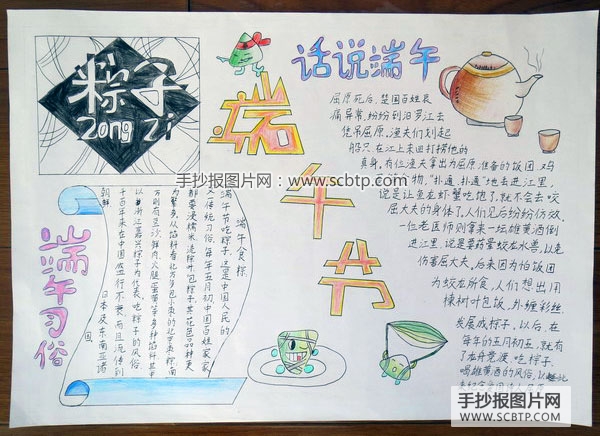 粽子
zong zi
话说端午
端
午
节
屈原死后,楚国百姓哀
痛异常,纷纷到汨罗江去
凭吊屈原,渔夫们划起
船只,在江上来回打捞他的
真身,有位渔夫拿出为屈原准备的饭团 鸡
物,“扑通,扑通”地丢进江里,
说是让鱼龙虾蟹吃饱了,就不会去咬
屈大夫的身体了,人们见后纷纷仿效,
一位老医师则拿来一坛雄黄酒倒
进江里,说是要药晕蛟龙水兽,以免
伤害屈大夫,后来因为怕饭团
为蛟龙所食,人们想出用
楝树叶包饭,外缠彩丝
发展成粽子,以后,在
每年的五月初五,就有
了龙舟竞渡,吃粽子
喝雄黄酒的风俗,以
端午习俗
端午食粽
端午节吃粽子,这是中国人民的
又一传统习俗,每年五月初中国百姓家家
都要浸糯米 洗粽叶包粽子,其花色品种更
为繁多,从馅料看北方多包小枣的北京枣粽;南
方则有豆沙 鲜肉 火腿 蛋黄等多种馅料 其中
以浙江嘉兴粽子为代表,吃粽子的风俗,
千百年来在中国盛行不衰 而且流传到
朝鲜 日本及东南亚诸
国
手抄报图片网:www.scbtp.com
手抄报图片网
WWW.SCBTP.COM